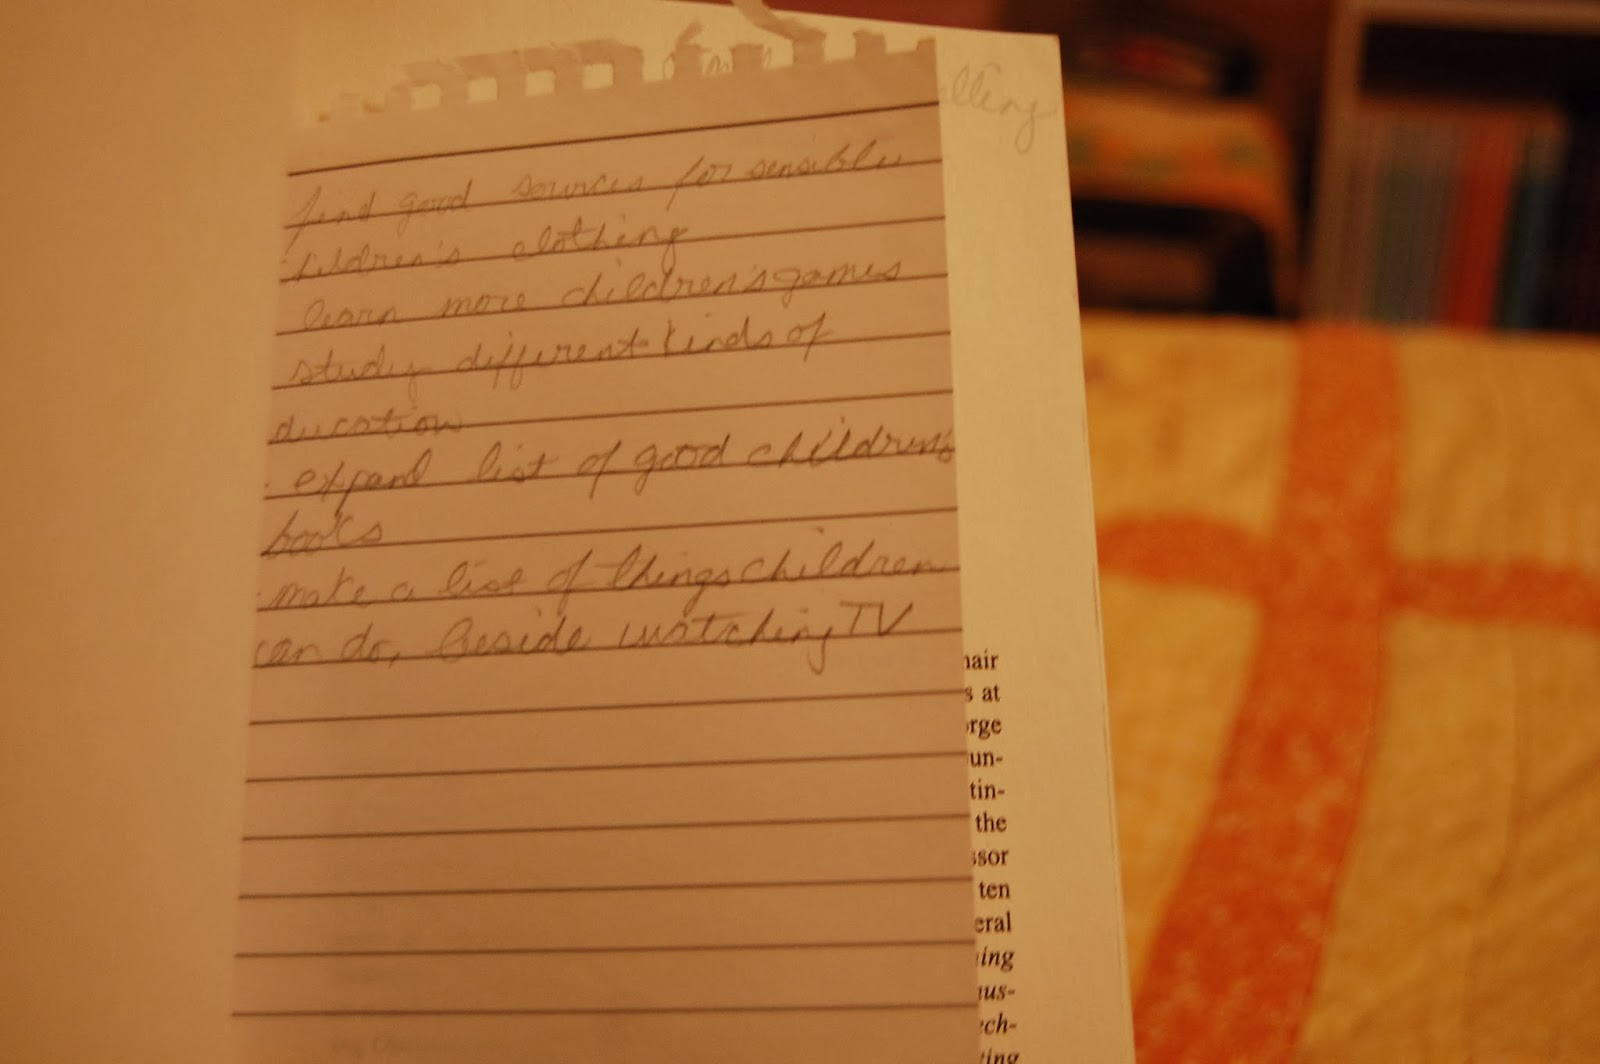 lling
find good sources for sensible
hildren's clothing
learn more children's games
study different kinds of
ducation
· expand list of good children's
books
· make a list of things children
can do, beside watching TV
hair
s at
orge
un-
tin-
the
ssor
ten
eral
ing
us-
ech-